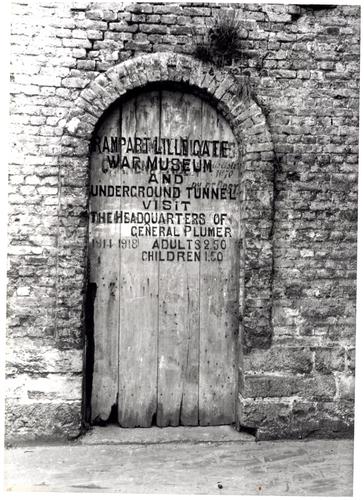 RAMPART LILLE GATE
WAR MUSEUM
AND
UNDERGROUND TUNNEL
VISIT
THE HEADQUARTERS OF
GENERAL PLUMER
1914-1918 ADULTS 2.50
CHILDREN 1.50